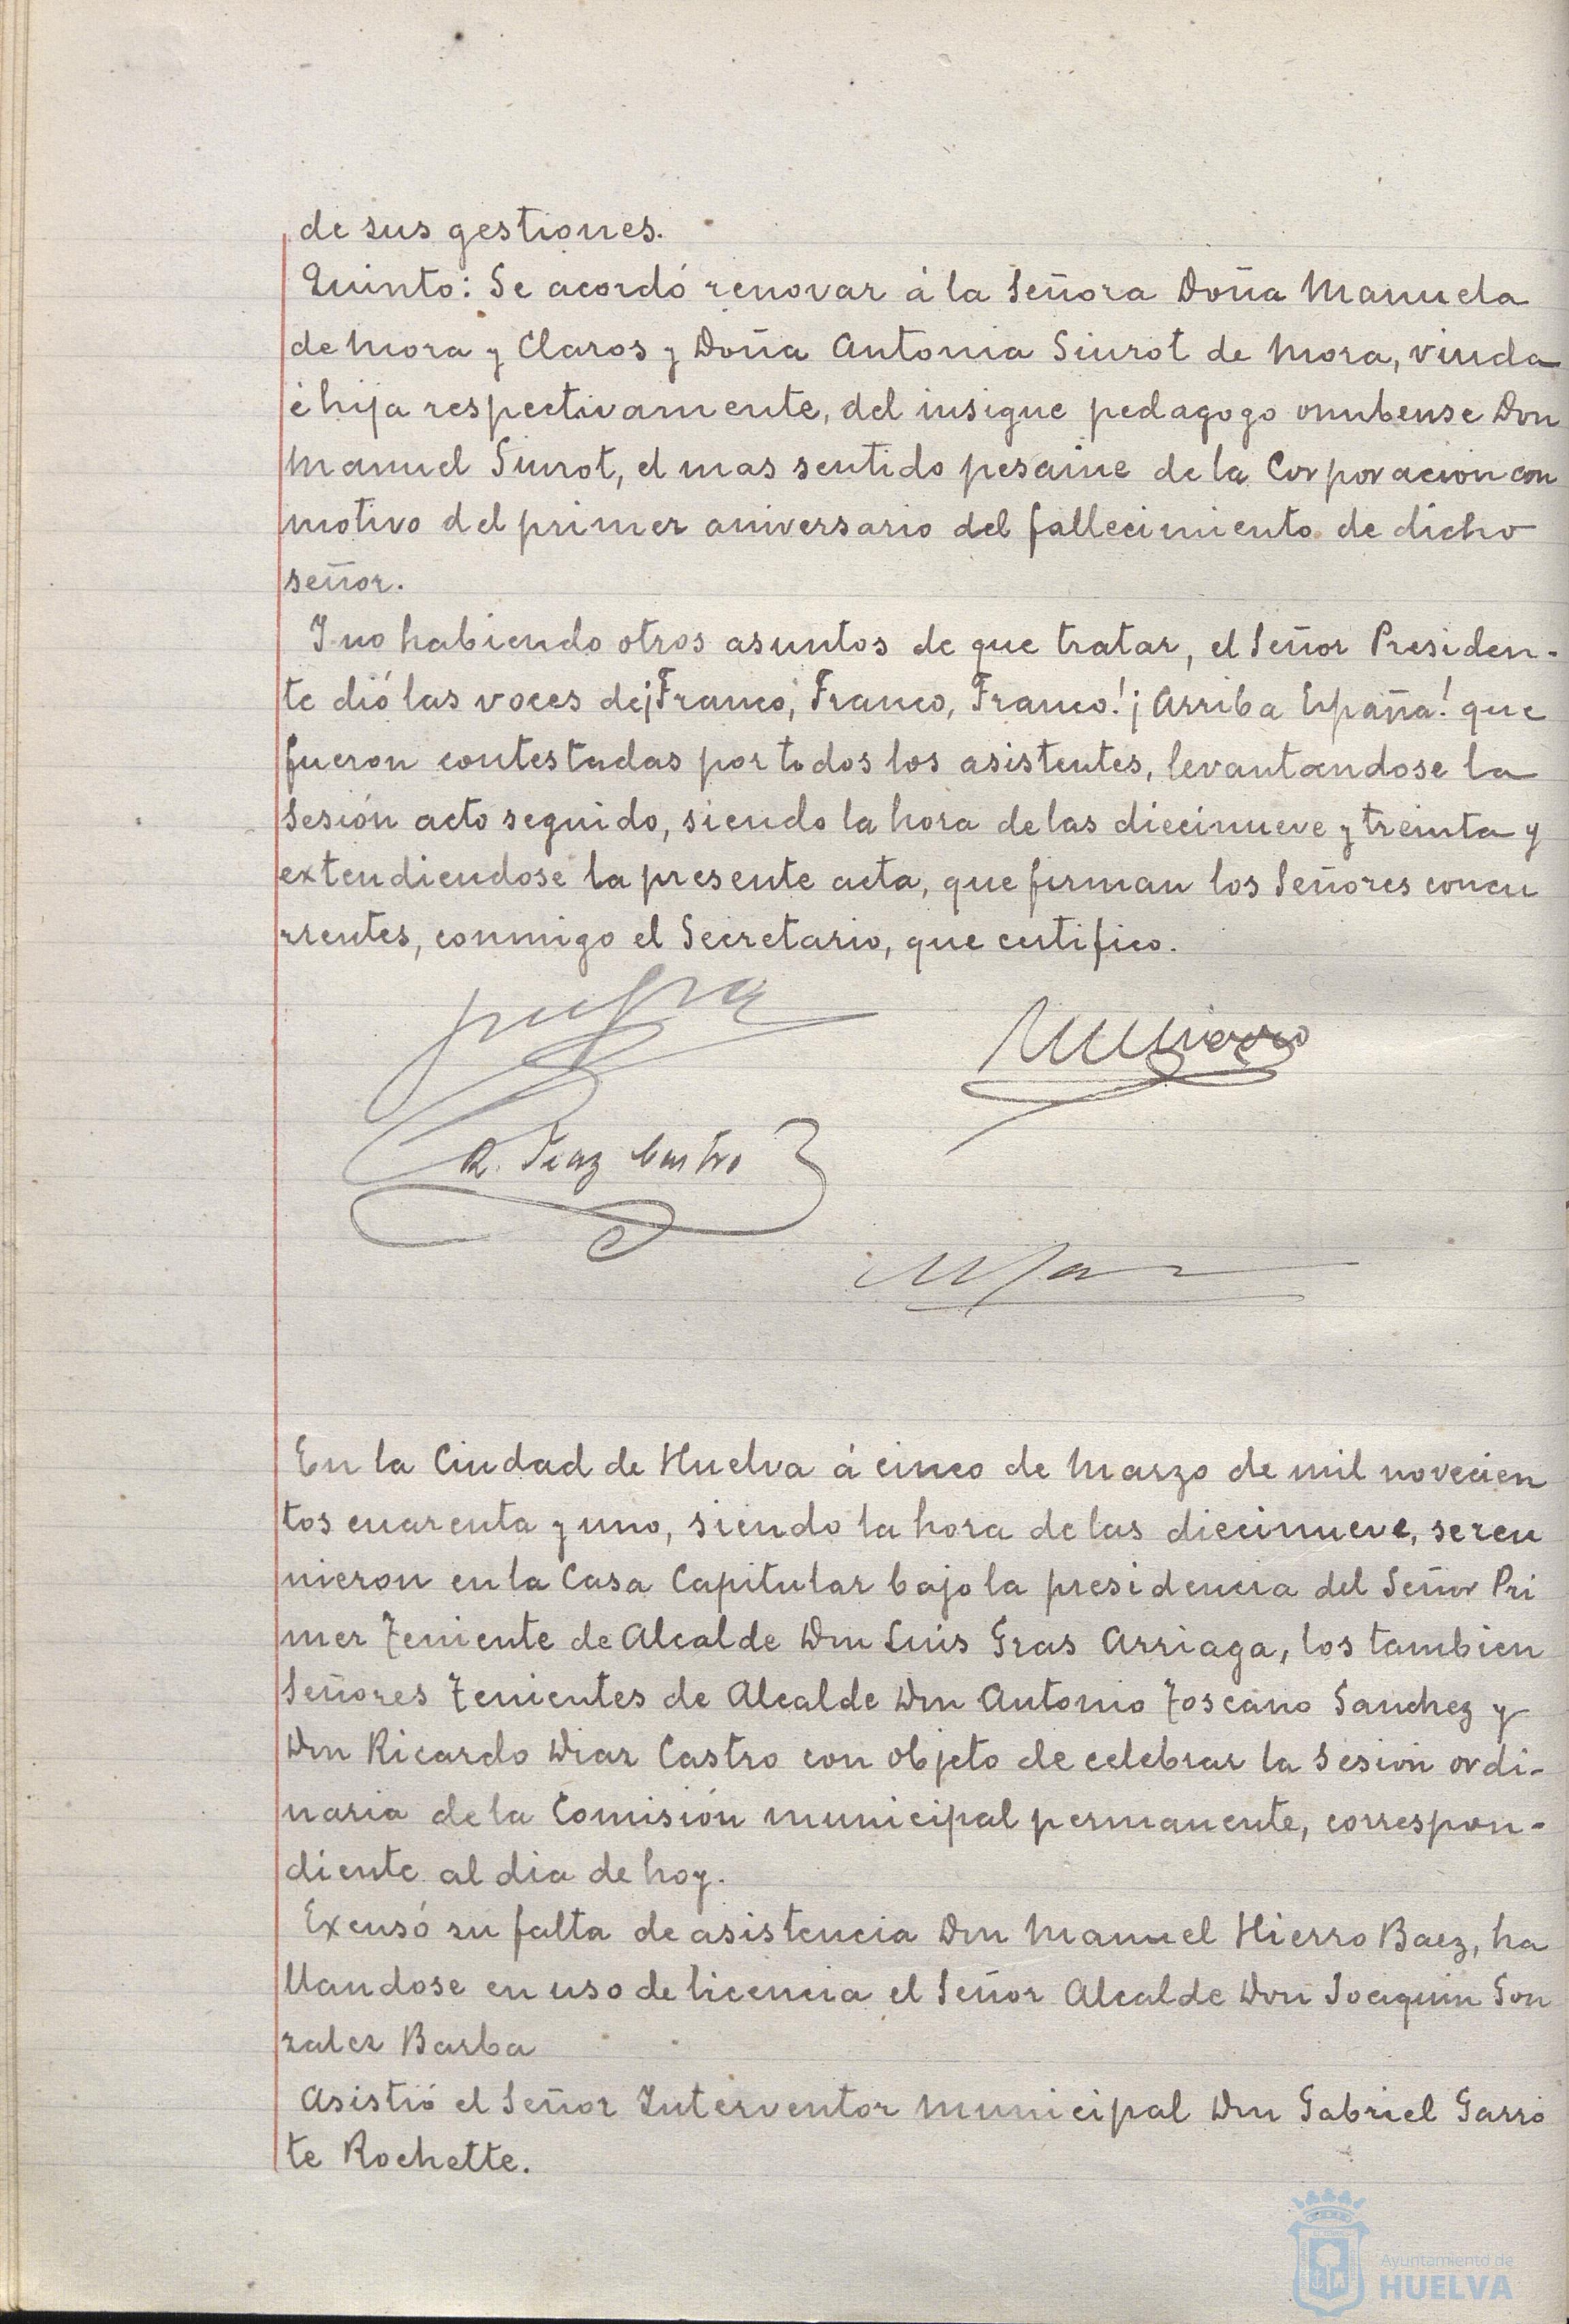 de sus gestiones.
Quinto: Se acordó renovar á la Señora Doña Manuela
de Mora y Claros y Doña Antonia Siurot de Mora, viuda
é hija respectivamente, del insigne pedagogo onubense Don
Manuel Siurot, el mas sentido pesame de la Corporacion con
motivo del primer aniversario del fallecimiento de dicho
señor.
Y no habiendo otros asuntos de que tratar, el Señor Presiden-
te dió las voces de ¡Franco, Franco, Franco! ¡Arriba España! que
fueron contestadas por todos los asistentes, levantandose la
Sesión acto seguido, siendo la hora de las diecinueve y treinta y
extendiendose la presente acta, que firman los Señores concu
rrentes, conmigo el Secretario, que certifico.
R. Diaz Castro
En la Ciudad de Huelva á cinco de Marzo de mil novecien
tos cuarenta y uno, siendo la hora de las diecinueve, se reu
nieron en la Casa Capitular bajo la presidencia del Señor Pri
mer Teniente de Alcalde Don Luis Gras Arriaga, los tambien
Señores Tenientes de Alcalde Don Antonio Toscano Sanchez y
Don Ricardo Diaz Castro con objeto de celebrar la Sesión ordi-
naria de la Comisión municipal permanente, correspon-
diente al dia de hoy.
Excusó su falta de asistencia Don Manuel Hierro Baez, ha
llandose en uso de licencia el Señor Alcalde Don Joaquin Gon
zalez Barba
Asistió el Señor Interventor Municipal Don Gabriel Garro
te Rochette.
Ayuntamiento de
HUELVA